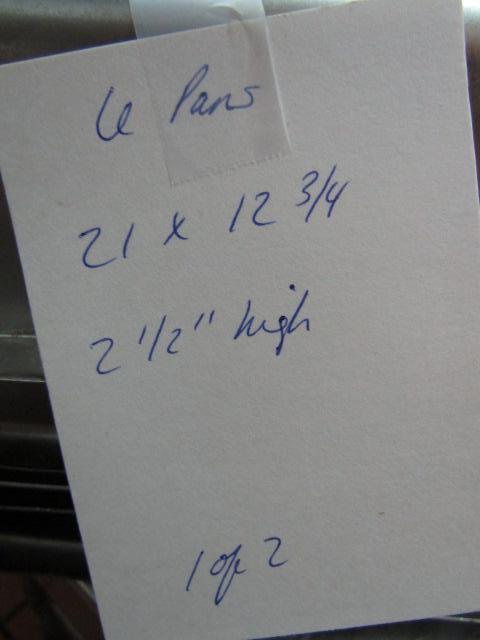 6 Pans
21 x 12 3/4
2 1/2" high
1 of 2